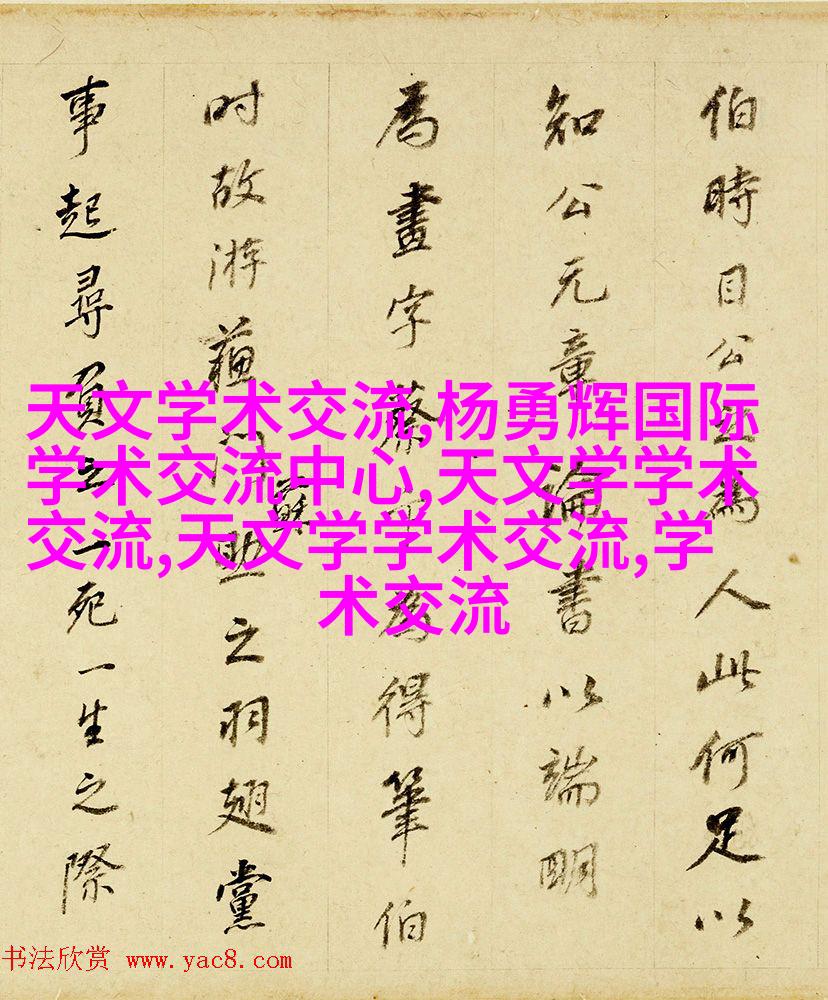 伯時目公為人此何足以
知公元章論書以端明
為畫字蔡為得筆伯
时故游蘓門蘇助之羽翅黨
事起尋負之一死一生之際
天文学术交流,杨勇辉国际
学术交流中心,天文学学术
交流,天文学学术交流,学
术交流
书法欣赏 www.yac8.com